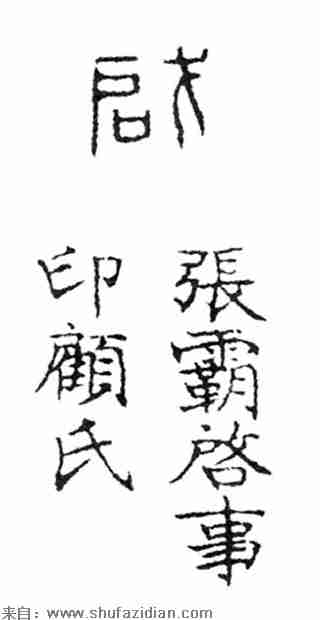 啟
張霸啓事
印顧氏
来自：www.shufazidian.com